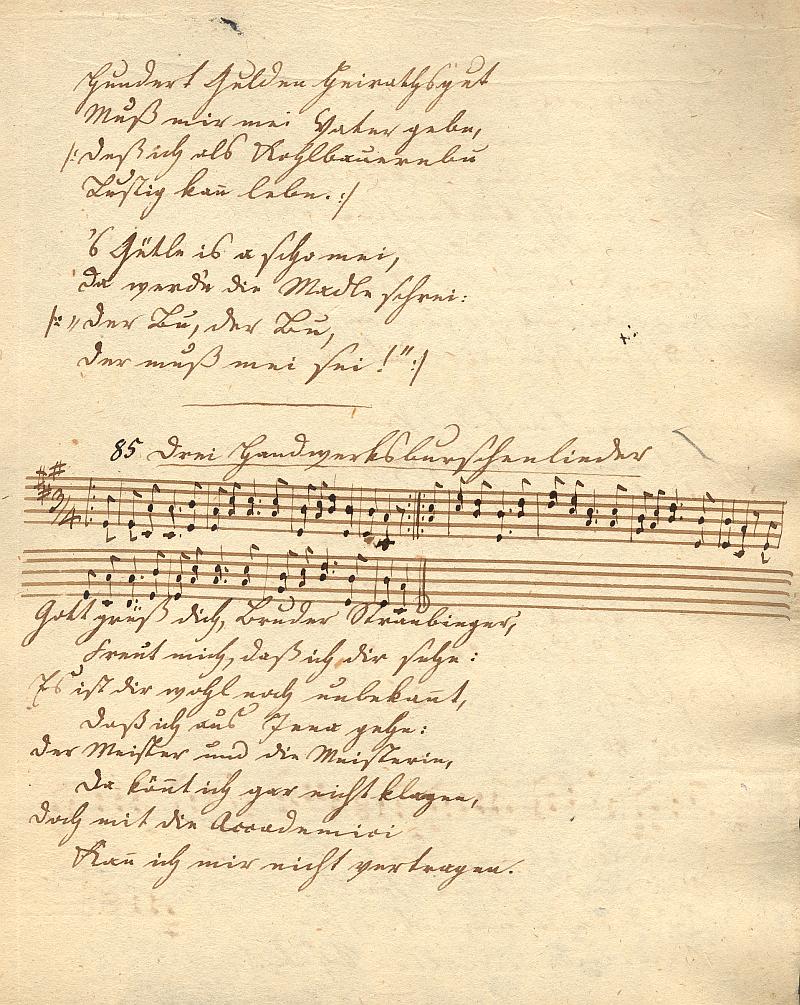 Hundert Gulden Heirathsgut
Muß mir mei Vater gebe,
|: Deß ich als Kohlbauernbu
Lustig kan̄ lebe. :|
's Gütle is a scho mei,
Da werd'n die Madle schrei:
|: „Der Bu, der Bu,
Der muß mei sei!" :|
85 Drei Handwerksburschenlieder
3/4
Gott grüß dich, Bruder Straubinger,
Freut mich, daß ich dir sehe:
Es ist dir wohl noch unbekan̄t,
Daß ich aus Jena gehe:
Der Meister und die Meisterin,
Da kön̄t ich gar nicht klagen,
Doch mit die Accademici
Kan̄ ich mir nicht vertragen.